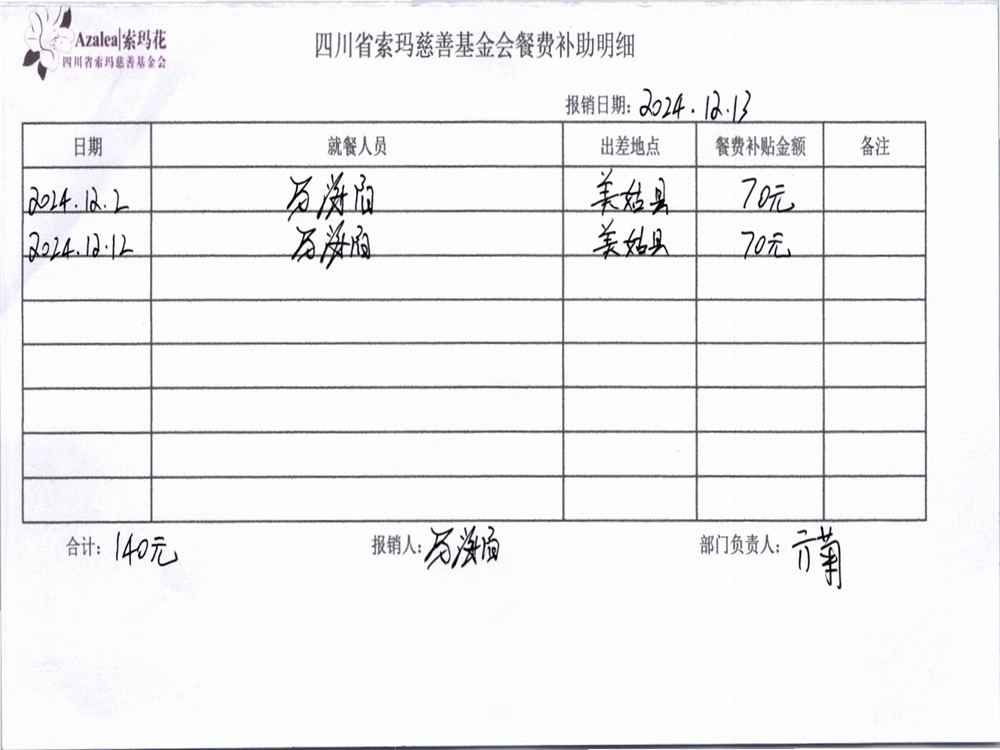 Azalea|索玛花
四川省索玛慈善基金会
四川省索玛慈善基金会餐费补助明细
报销日期: 2024.12.13
日期 就餐人员 出差地点 餐费补贴金额 备注
2024.12.2 美姑县 70元
2024.12.12 美姑县 70元
合计: 140元 报销人: 部门负责人: